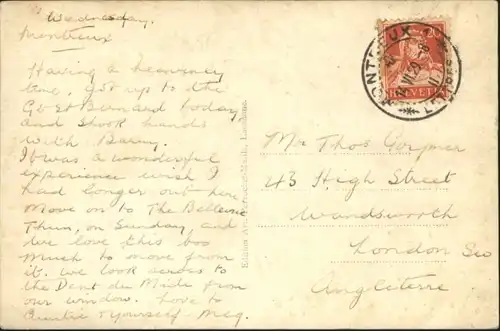 Wednesday.
Montreux
Having a heavenly
time, got up to the
Gd St Bernard today
and shook hands
with Barry.
It was a wonderful
experience wish I
had longer out here
Move on to The Bellevue
Thun, on Sunday, and
we love this too
much to move from
it. We look across to
the Dent du Midi from
our window. Love to
Auntie & yourself – Meg.
MONTREUX
HELVETIA
Mr Thos
43 High Street
Wandsworth
London SW
Angleterre